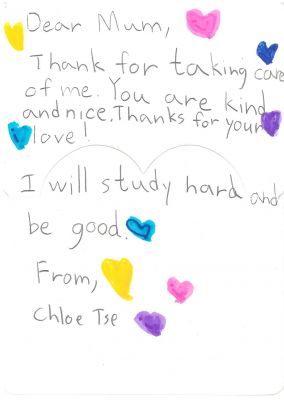 Dear Mum,
Thank for taking care
of me. You are kind
and nice. Thanks for your
love!
I will study hard and
be good.
From,
Chloe Tse